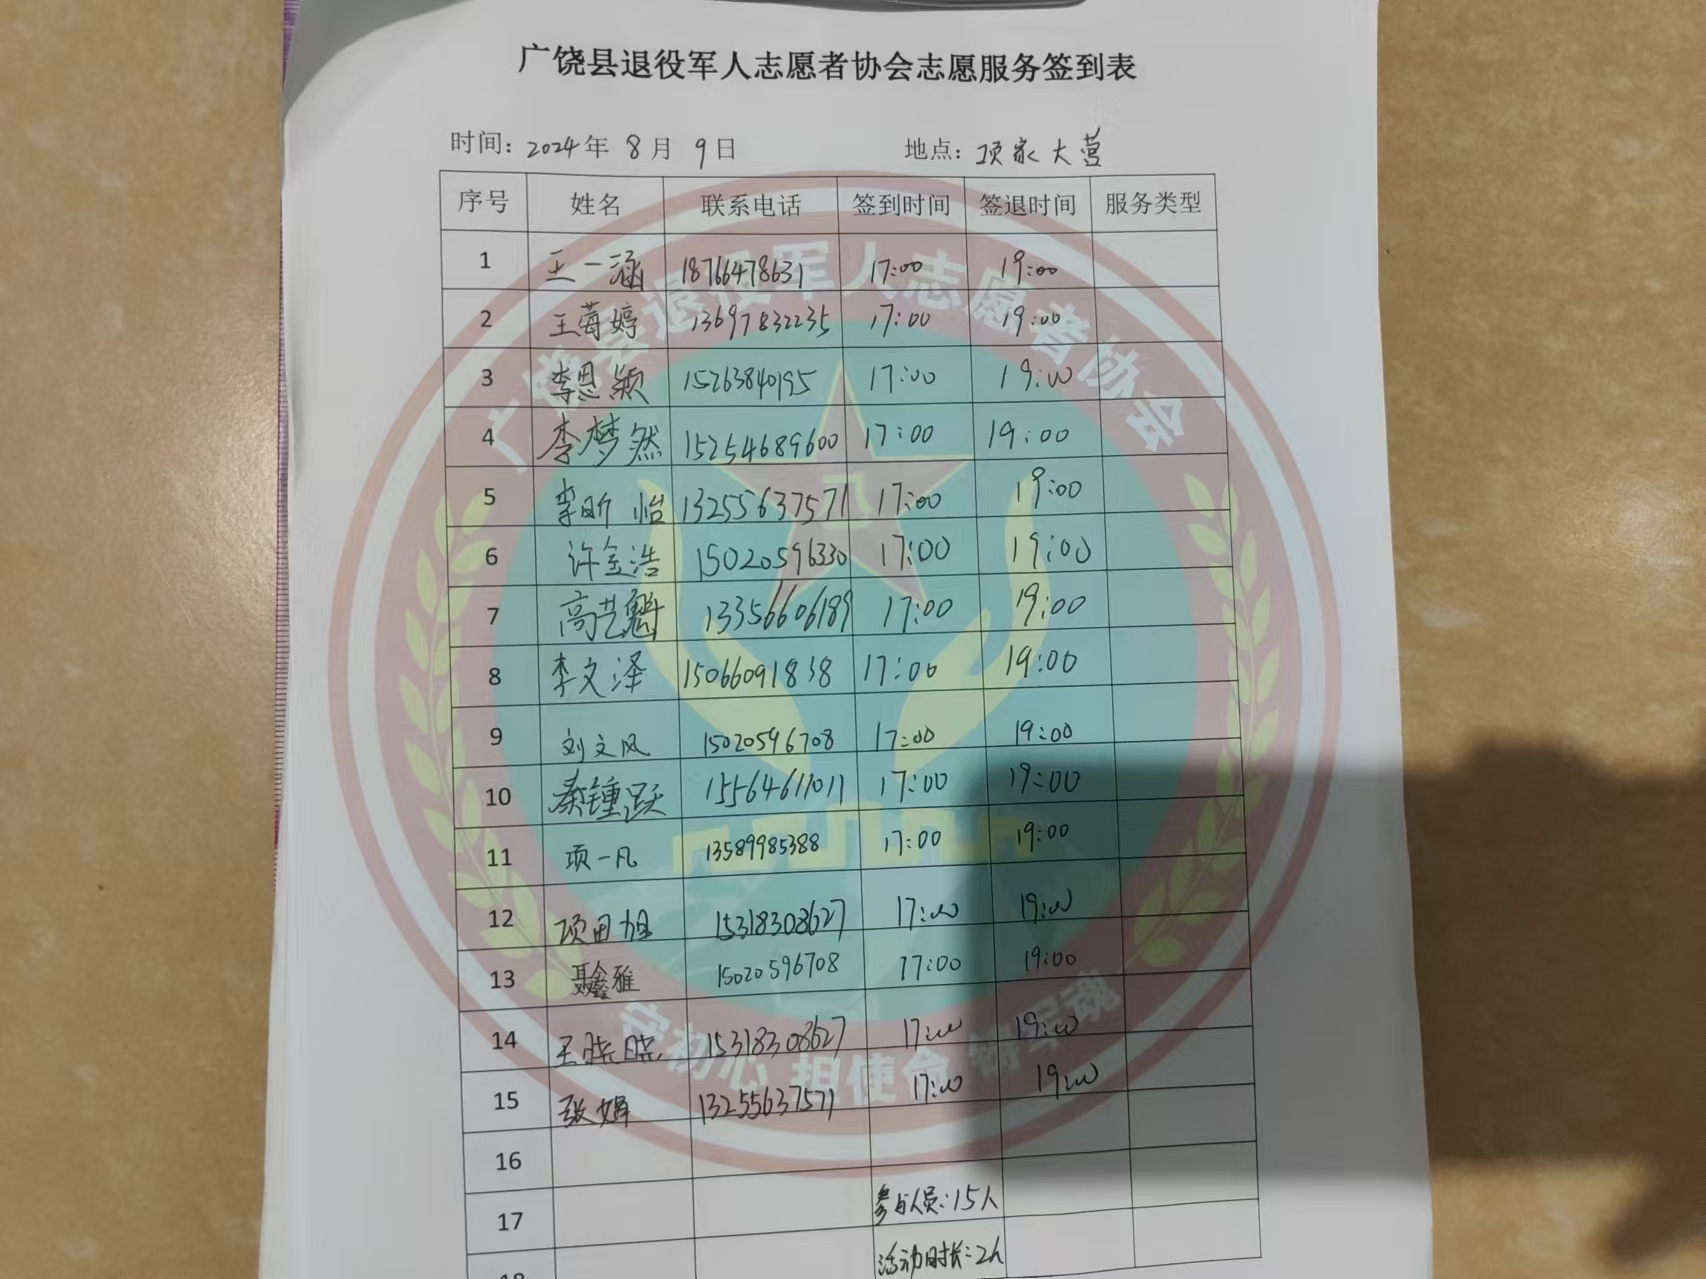 广饶县退役军人志愿者协会志愿服务签到表
时间: 2024年 8月 9日 地点: 项家大营
序号 姓名 联系电话 签到时间 签退时间 服务类型
1 王一涵 18766478631 17:00 19:00
2 王莓婷 13697832235 17:00 19:00
3 李恩颖 15263840195 17:00 19:00
4 李梦然 15254689600 17:00 19:00
5 李昕怡 13255637571 17:00 19:00
6 许金浩 15020596330 17:00 19:00
7 高艺魁 13356606189 17:00 19:00
8 李文泽 15066091838 17:00 19:00
9 刘文风 15020596708 17:00 19:00
10 秦锺跃 15564611011 17:00 19:00
11 项一凡 13589985388 17:00 19:00
12 项田旭 15318308627 17:00 19:00
13 聂鑫雅 15020596708 17:00 19:00
14 王晓晓 15318308627 17:00 19:00
15 张娟 13255637571 17:00 19:00
16
17 参与人员:15人
18 活动时长:2h
广饶县退役军人志愿者协会
守初心 担使命 铸军魂